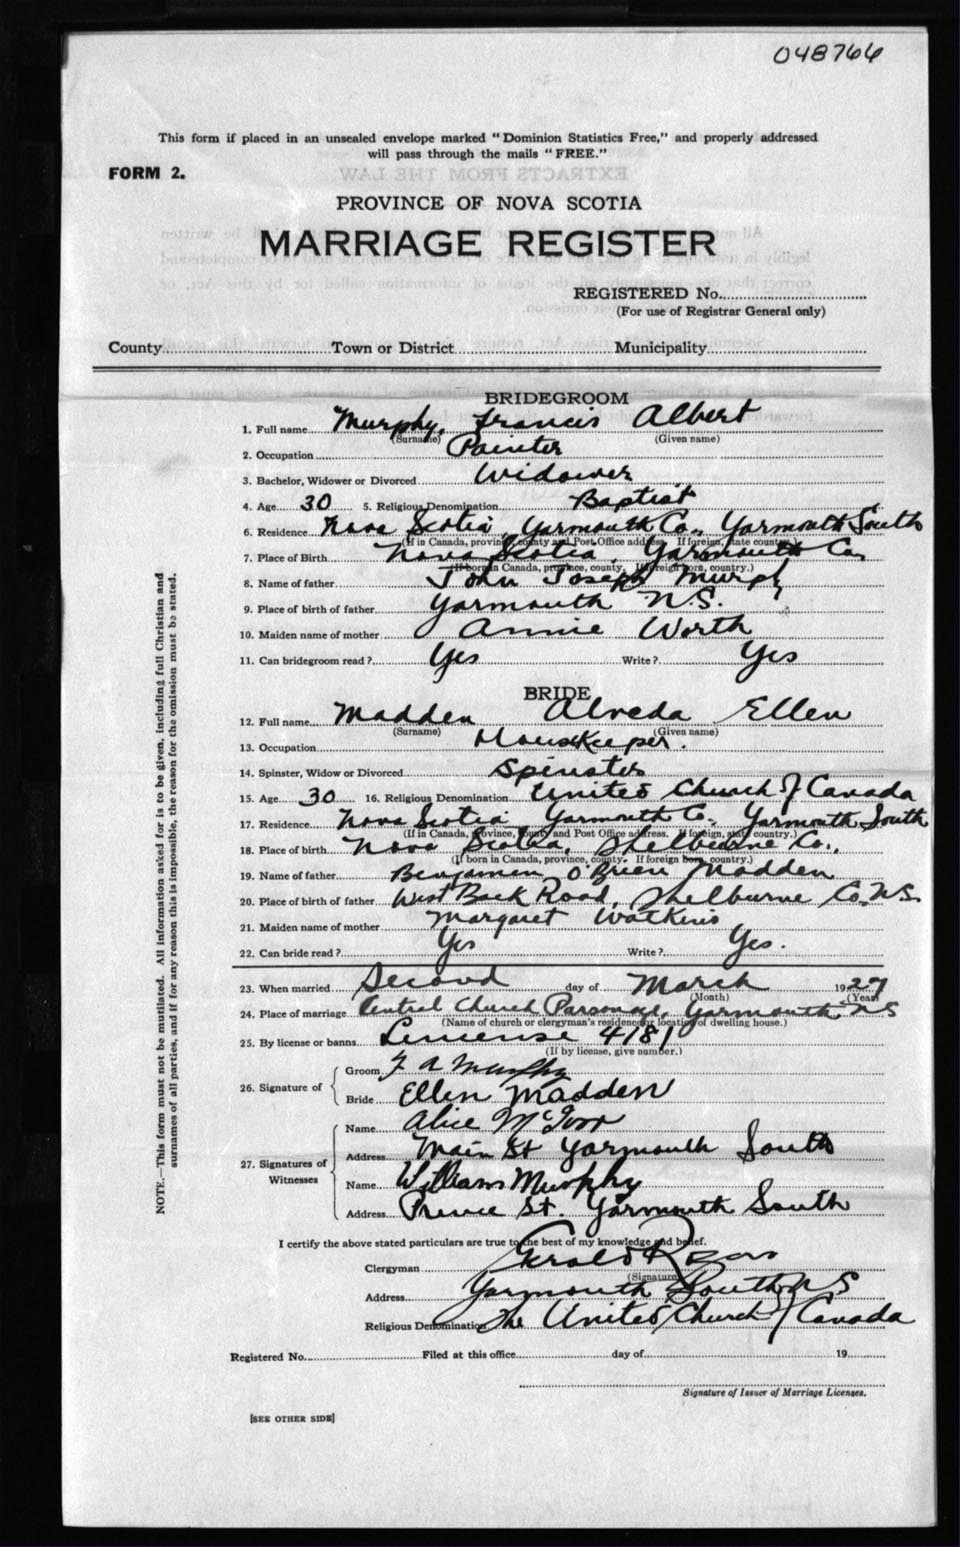 048766
This form if placed in an unsealed envelope marked "Dominion Statistics Free," and properly addressed
will pass through the mails "FREE."
FORM 2.
EXTRACTS FROM THE LAW
PROVINCE OF NOVA SCOTIA
MARRIAGE REGISTER
REGISTERED No.
(For use of Registrar General only)
County Town or District Municipality
BRIDEGROOM
1. Full name Murphy, Francis Albert
(Surname) (Given name)
2. Occupation Painter
3. Bachelor, Widower or Divorced Widower
4. Age 30 5. Religious Denomination Baptist
6. Residence Nova Scotia, Yarmouth Co., Yarmouth South
(If in Canada, province, county and Post Office address. If foreign, state country.)
7. Place of Birth Nova Scotia, Yarmouth Co.
(If born in Canada, province, county. If foreign born, country.)
8. Name of father John Joseph Murphy
9. Place of birth of father Yarmouth N.S.
10. Maiden name of mother Annie Worth
11. Can bridegroom read? Yes Write? Yes
BRIDE
12. Full name Madden Alveda Ellen
(Surname) (Given name)
13. Occupation Housekeeper.
14. Spinster, Widow or Divorced Spinster
15. Age 30 16. Religious Denomination United Church of Canada
17. Residence Nova Scotia Yarmouth Co. Yarmouth South
(If in Canada, province, county and Post Office address. If foreign, state country.)
18. Place of birth Nova Scotia, Shelburne Co.,
(If born in Canada, province, county. If foreign born, country.)
19. Name of father Benjamin O'Brien Madden
20. Place of birth of father West Back Road, Shelburne Co. N.S.
21. Maiden name of mother Margaret Watkins
22. Can bride read? Yes Write? Yes.
23. When married Second day of March 1927
(Month) (Year)
24. Place of marriage Central Church Parsonage, Yarmouth, NS
(Name of church or clergyman's residence or location of dwelling house.)
25. By license or banns 4181
(If by license, give number.)
26. Signature of
Groom F A Murphy
Bride Ellen Madden
27. Signatures of Witnesses
Name Alice
Address Main St Yarmouth South
Name William Murphy
Address Prince St. Yarmouth South
I certify the above stated particulars are true to the best of my knowledge and belief.
Clergyman Gerald R
(Signature)
Address Yarmouth South NS
Religious Denomination The United Church of Canada
Registered No. Filed at this office day of 19
Signature of Issuer of Marriage Licenses.
[SEE OTHER SIDE]
NOTE.—This form must not be mutilated. All information asked for is to be given, including full Christian and
surnames of all parties, and if for any reason this is impossible, the reason for the omission must be stated.